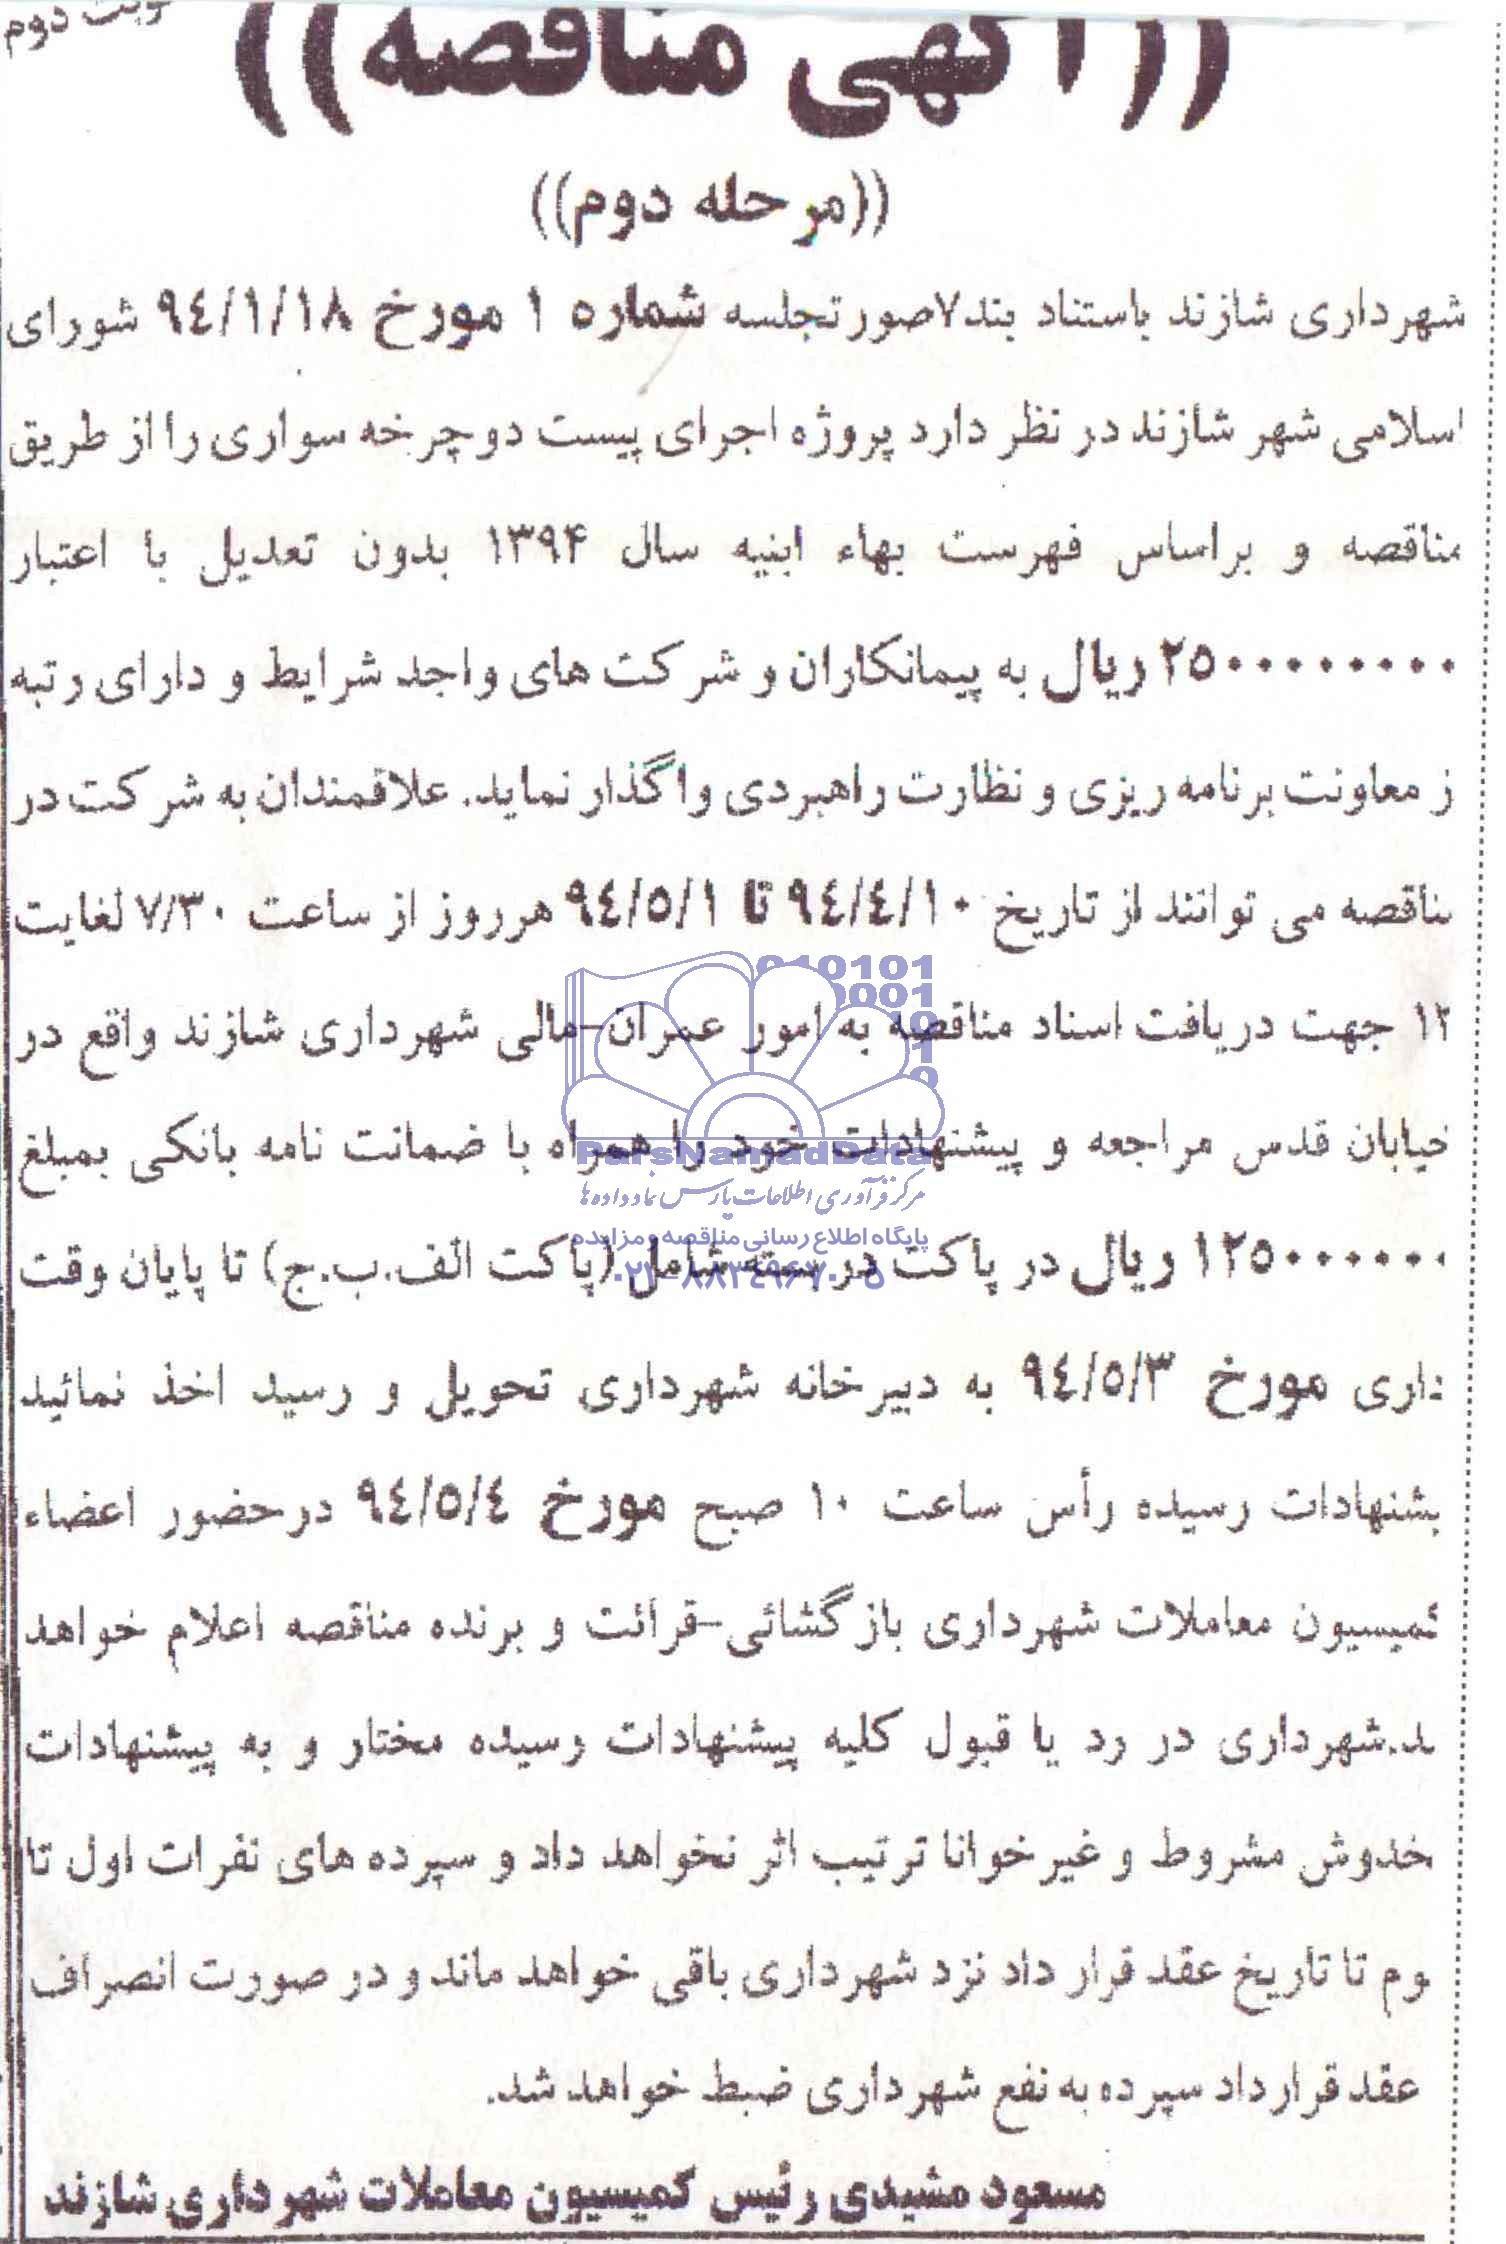 نوبت دوم
((آگهی مناقصه))
((مرحله دوم))
شهرداری شازند باستناد بند۷صورتجلسه شماره ۱ مورخ ۹٤/۱/۱۸ شورای
اسلامی شهر شازند در نظر دارد پروژه اجرای پیست دوچرخه سواری را از طریق
مناقصه و براساس فهرست بهاء ابنیه سال ۱۳۹۴ بدون تعدیل با اعتبار
۲٥۰۰۰۰۰۰۰۰ ریال به پیمانکاران و شرکت های واجد شرایط و دارای رتبه
ز معاونت برنامه ریزی و نظارت راهبردی واگذار نماید. علاقمندان به شرکت در
ناقصه می توانند از تاریخ ۹٤/٤/۱۰ تا ۹٤/٥/۱ هرروز از ساعت ۷/۳۰ لغایت
۱۲ جهت دریافت اسناد مناقصه به امور عمران-مالی شهرداری شازند واقع در
خیابان قدس مراجعه و پیشنهادات خود را همراه با ضمانت نامه بانکی بمبلغ
۱۲٥۰۰۰۰۰۰ ریال در پاکت در بسته شامل (پاکت الف.ب.ج) تا پایان وقت
داری مورخ ۹٤/٥/۳ به دبیرخانه شهرداری تحویل و رسید اخذ نمائید
بشنهادات رسیده رأس ساعت ۱۰ صبح مورخ ۹٤/٥/٤ درحضور اعضاء
کمیسیون معاملات شهرداری بازگشائی-قرائت و برنده مناقصه اعلام خواهد
ـد.شهرداری در رد یا قبول کلیه پیشنهادات رسیده مختار و به پیشنهادات
خدوش مشروط و غیرخوانا ترتیب اثر نخواهد داد و سپرده های نفرات اول تا
وم تا تاریخ عقد قرار داد نزد شهرداری باقی خواهد ماند و در صورت انصراف
عقد قرارداد سپرده به نفع شهرداری ضبط خواهد شد.
مسعود مشیدی رئیس کمیسیون معاملات شهرداری شازند
010101
0001
ParsNamadData
مرکز فرآوری اطلاعات پارس نماد داده ها
پایگاه اطلاع رسانی مناقصه و مزایده
۰۲۱-۸۸۳٤۹٦۷۰-٥